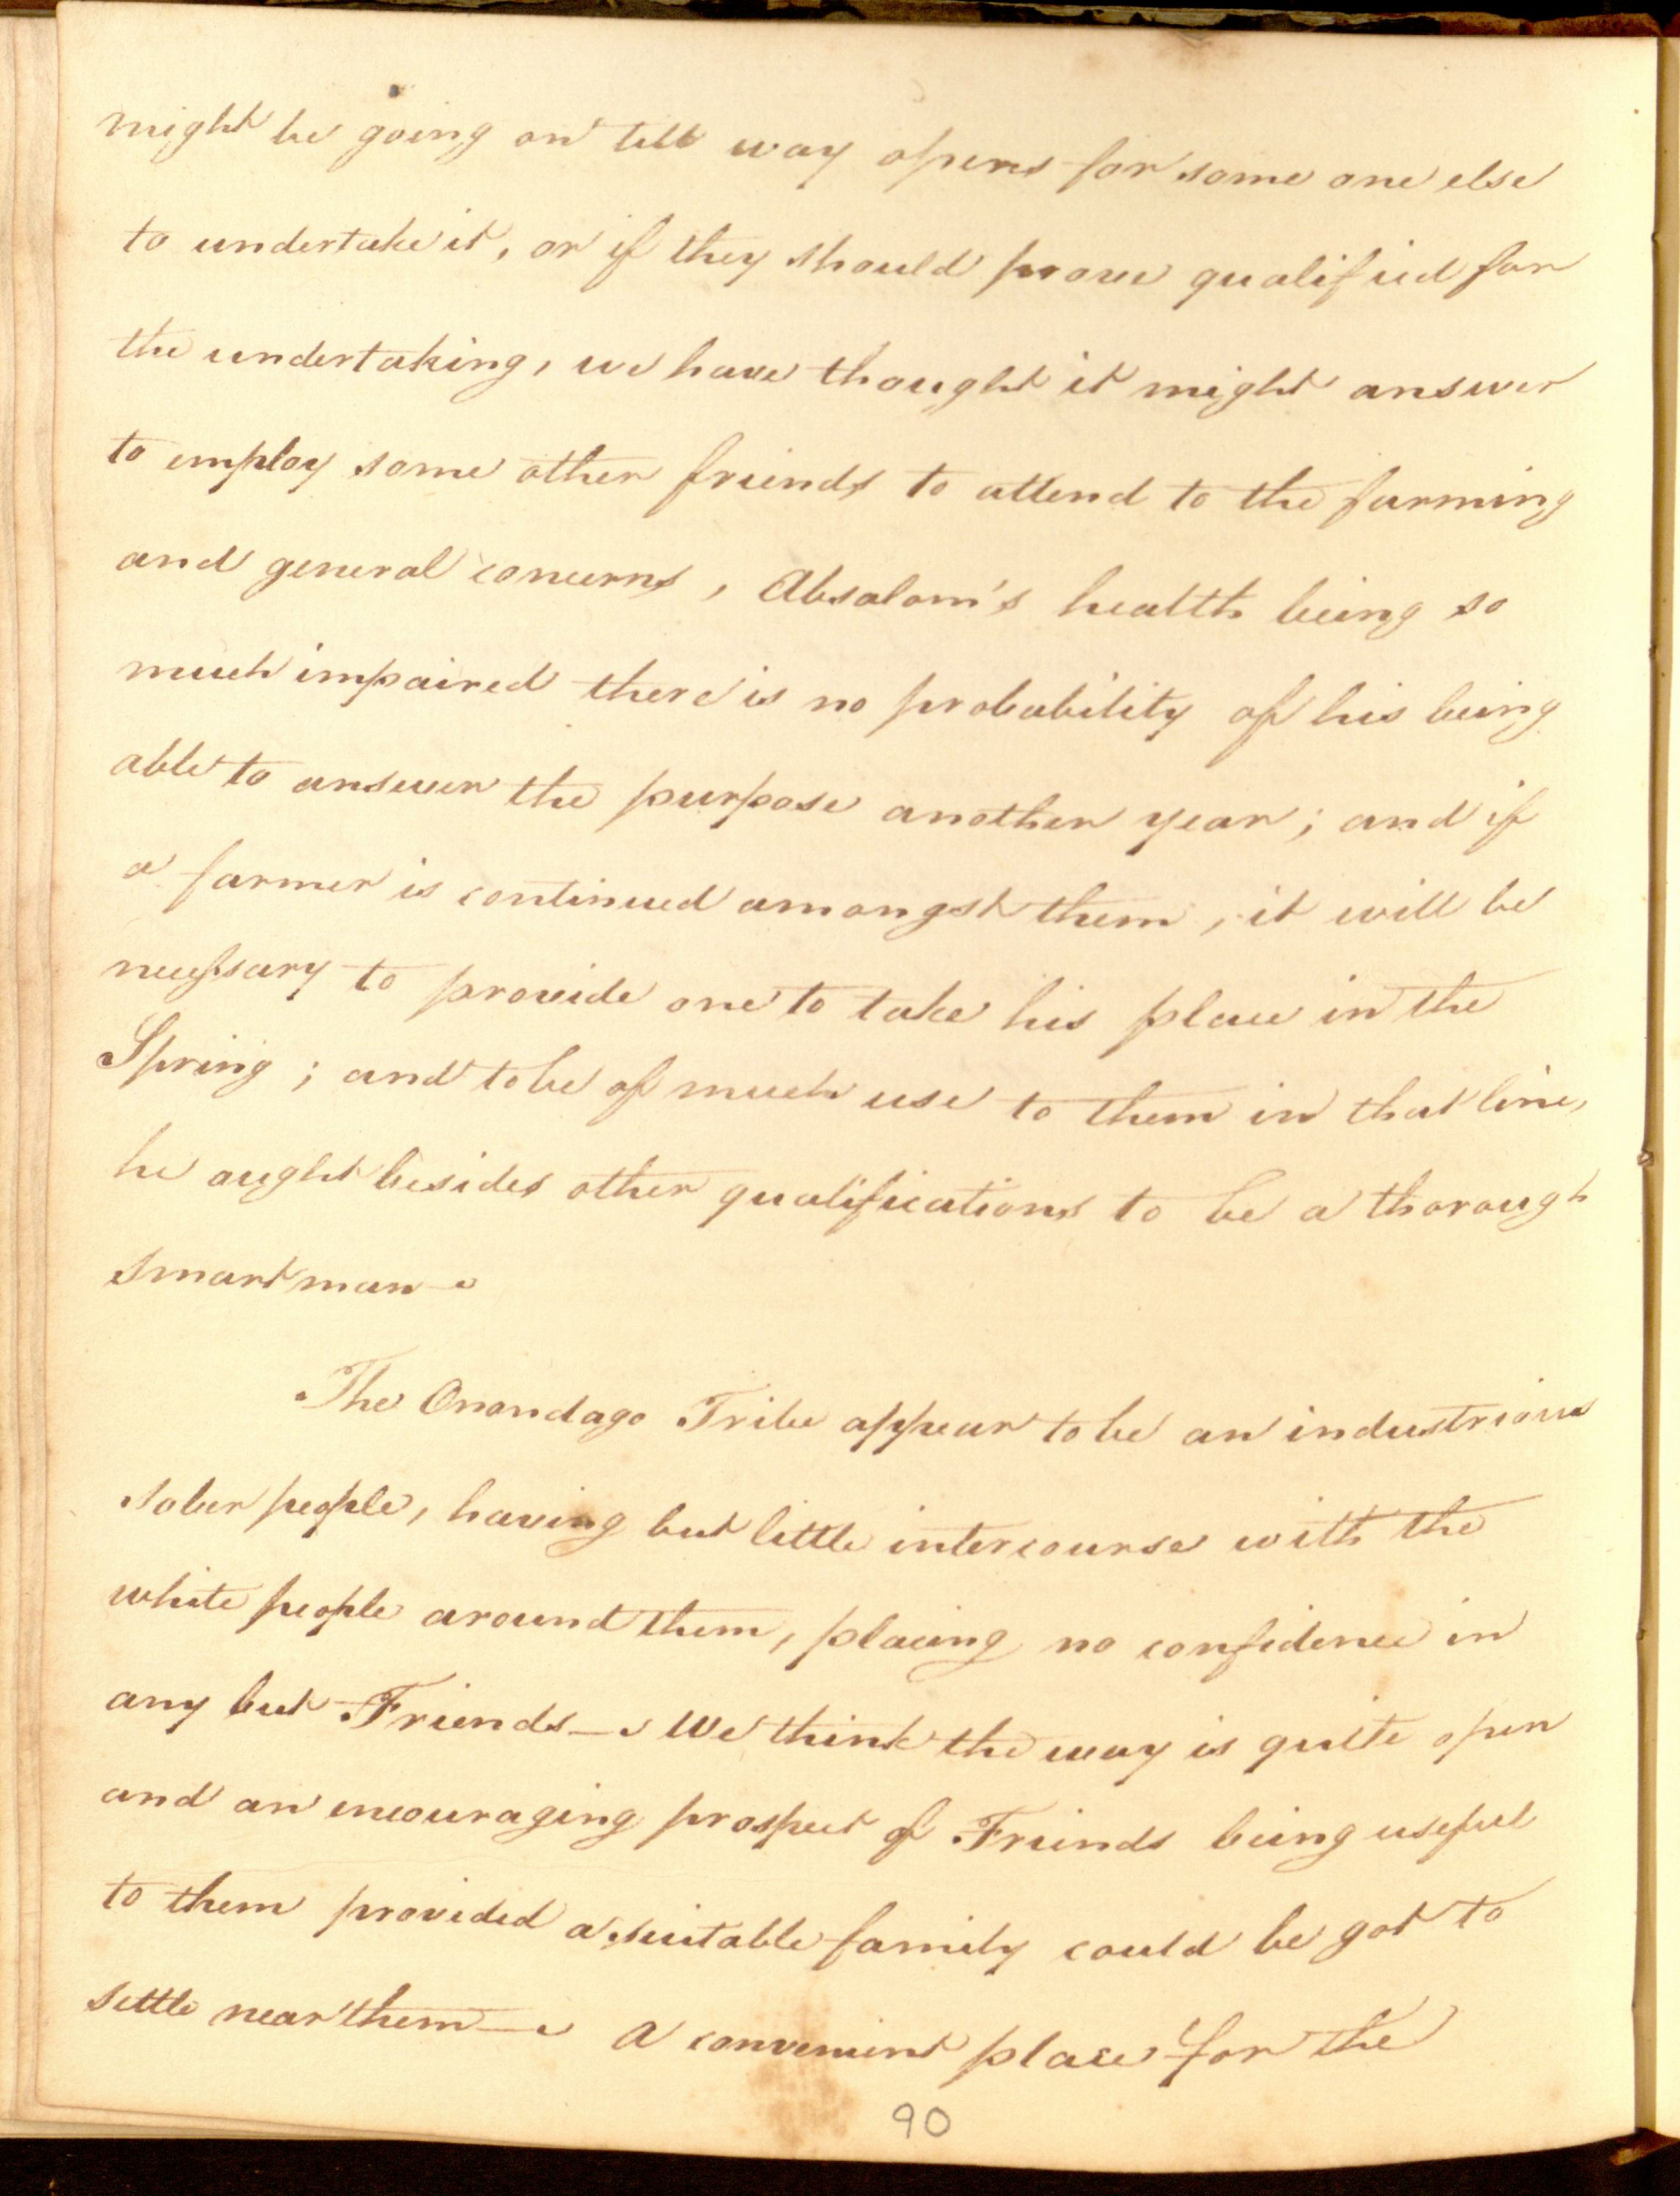 might be going on till way opens for some one else
to undertake it, or if they should prove qualified for
the undertaking, we have thought it might answer
to employ some other friends to attend to the farming
and general concerns, Absalom's health being so
much impaired there is no probability of his being
able to answer the purpose another year; and if
a farmer is continued amongst them, it will be
necessary to provide one to take his place in the
Spring; and to be of much use to them in that line,
he ought besides other qualifications to be a thorough
smart man—
The Onondago Tribe appear to be an industrious
sober people, having but little intercourse with the
white people around them, placing no confidence in
any but Friends— We think the way is quite open
and an encouraging prospect of Friends being useful
to them provided a suitable family could be got to
settle near them— A convenient place for the
90